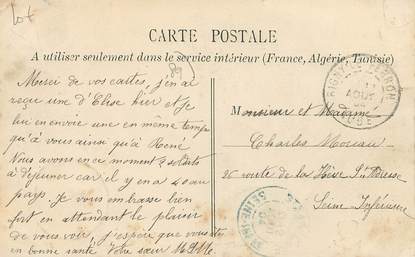 Lot
CARTE POSTALE
A utiliser seulement dans le service intérieur (France, Algérie, Tunisie)
89
Merci de vos cartes, j'en ai
reçu une d'Elise hier et je
lui en envoie une en même temps
qu'à vous ainsi qu'à René
Nous avons en ce moment 2 soldats
à déjeuner car il y en a 4 au
pays. Je vous embrasse bien
fort en attendant le plaisir
de vous voir, j'espère que vous êtes
en bonne santé Votre sœur
AOUT
AUBE
Monsieur et Madame
Charles Moreau
25 route de la Hève Ste Adresse
Seine Inférieure
SEINE